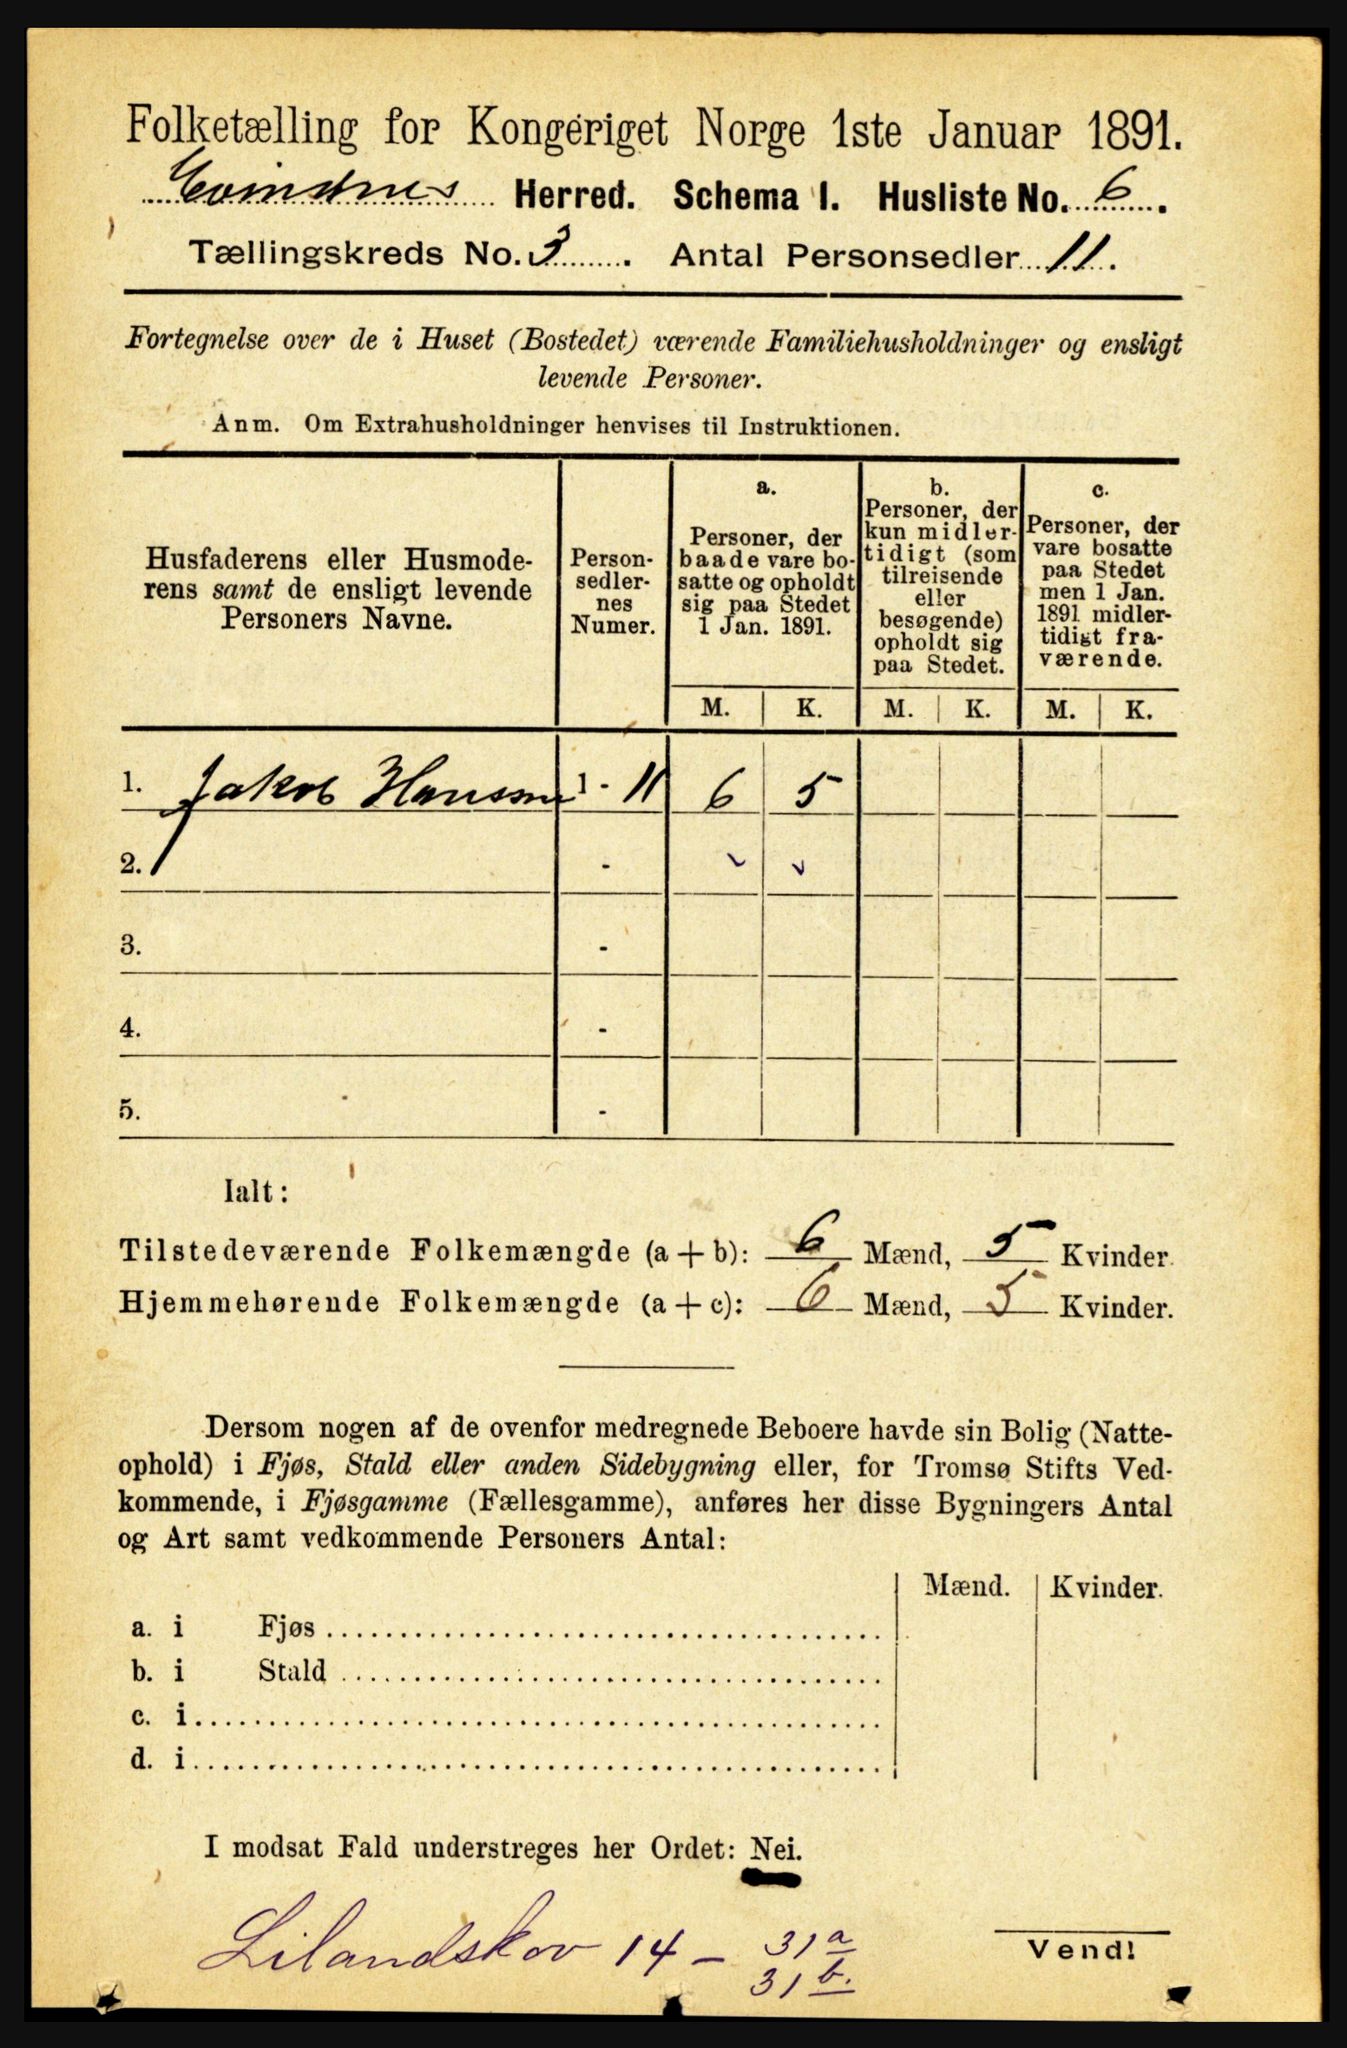 Folketælling for Kongeriget Norge 1ste Januar 1891.
Evindnes Herred. Schema I. Husliste No. 6.
Tællingskreds No. 3. Antal Personsedler 11.
Fortegnelse over de i Huset (Bostedet) værende Familiehusholdninger og ensligt
levende Personer.
Anm. Om Extrahusholdninger henvises til Instruktionen.
Husfaderens eller Husmode-
rens samt de ensligt levende
Personers Navne.
Person-
sedler-
nes
Numer.
a.
Personer, der
baade vare bo-
satte og opholdt
sig paa Stedet
1 Jan. 1891.
b.
Personer, der
kun midler-
tidigt (som
tilreisende
eller
besøgende)
opholdt sig
paa Stedet.
c.
Personer, der
vare bosatte
paa Stedet
men 1 Jan.
1891 midler-
tidigt fra-
værende.
M. K. M. K. M. K.
1. Jakob Hanssen 1 - 11 6 5
2. -
3. -
4. -
5. -
Ialt:
Tilstedeværende Folkemængde (a + b): 6 Mænd, 5 Kvinder.
Hjemmehørende Folkemængde (a + c): 6 Mænd, 5 Kvinder.
Dersom nogen af de ovenfor medregnede Beboere havde sin Bolig (Natte-
ophold) i Fjøs, Stald eller anden Sidebygning eller, for Tromsø Stifts Ved-
kommende, i Fjøsgamme (Fællesgamme), anføres her disse Bygningers Antal
og Art samt vedkommende Personers Antal:
Mænd. Kvinder.
a. i Fjøs
b. i Stald
c. i
d. i
I modsat Fald understreges her Ordet: Nei.
Lilandskov 14 - 31 a
31 b.
Vend!